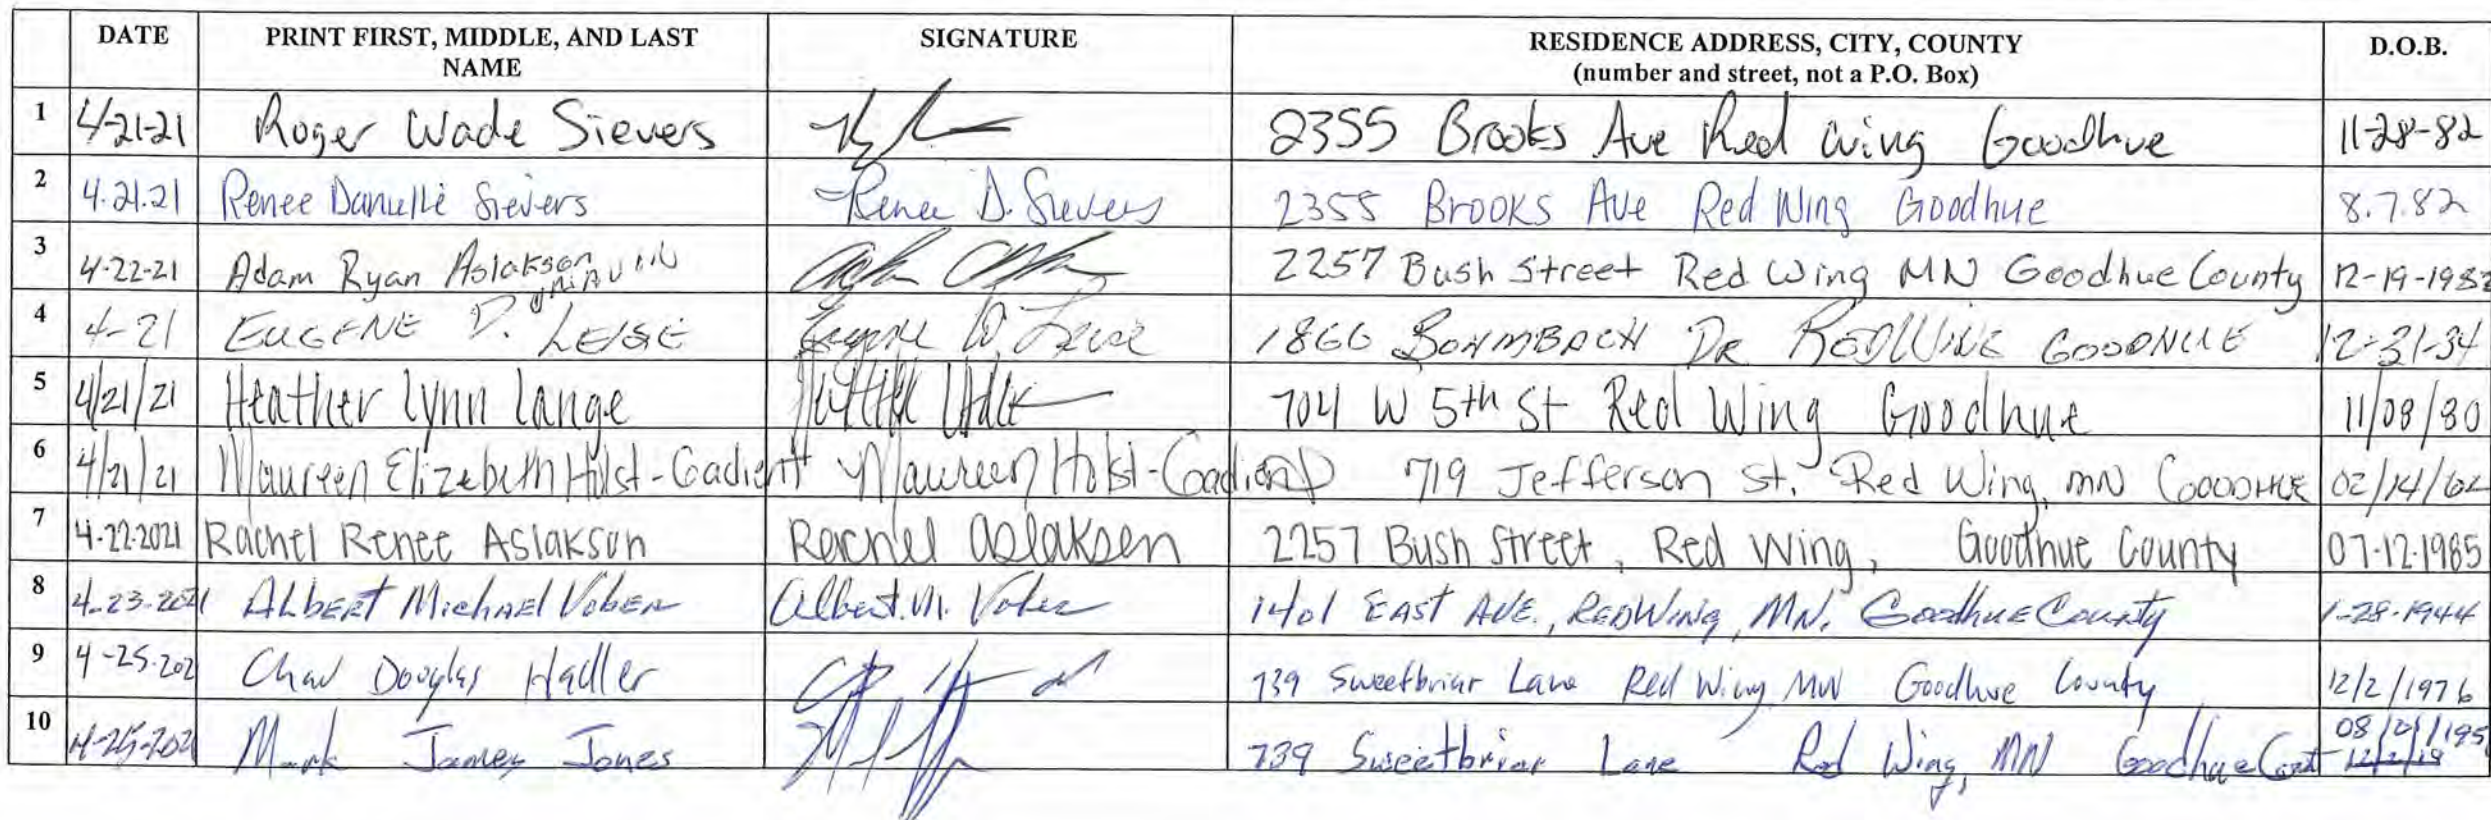 DATE PRINT FIRST, MIDDLE, AND LAST NAME SIGNATURE RESIDENCE ADDRESS, CITY, COUNTY (number and street, not a P.O. Box) D.O.B.
1 4-21-21 Roger Wade Sievers 2355 Brooks Ave Red Wing Goodhue 11-28-82
2 4.21.21 Renee Danielle Sievers Renee D. Sievers 2355 Brooks Ave Red Wing Goodhue 8.7.82
3 4-22-21 Adam Ryan Aslakson 2257 Bush Street Red Wing MN Goodhue County 12-19-1983
4 4-21 EUGENE D. LEISE Eugene D Leise 1866 BOHMBACH DR REDWING GOODHUE 12-31-34
5 4/21/21 Heather Lynn Lange 704 W 5th St Red Wing Goodhue 11/08/80
6 4/21/21 Maureen Elizabeth Holst-Gadient Maureen Holst-Gadient 719 Jefferson St. Red Wing, MN GOODHUE 02/14/62
7 4.22.2021 Rachel Renee Aslakson Rachel Aslakson 2257 Bush Street, Red Wing, Goodhue County 07.12.1985
8 4-23-2021 ALBERT Michael Vober Albert M. Vober 1401 EAST AVE., RED Wing, MN, Goodhue County 1-28-1944
9 4-25-202 Chad Douglas Hadler 739 Sweetbriar Lane Red Wing MN Goodhue County 12/2/1976
10 4-25-202 Mark James Jones 739 Sweetbriar Lane Red Wing, MN Goodhue